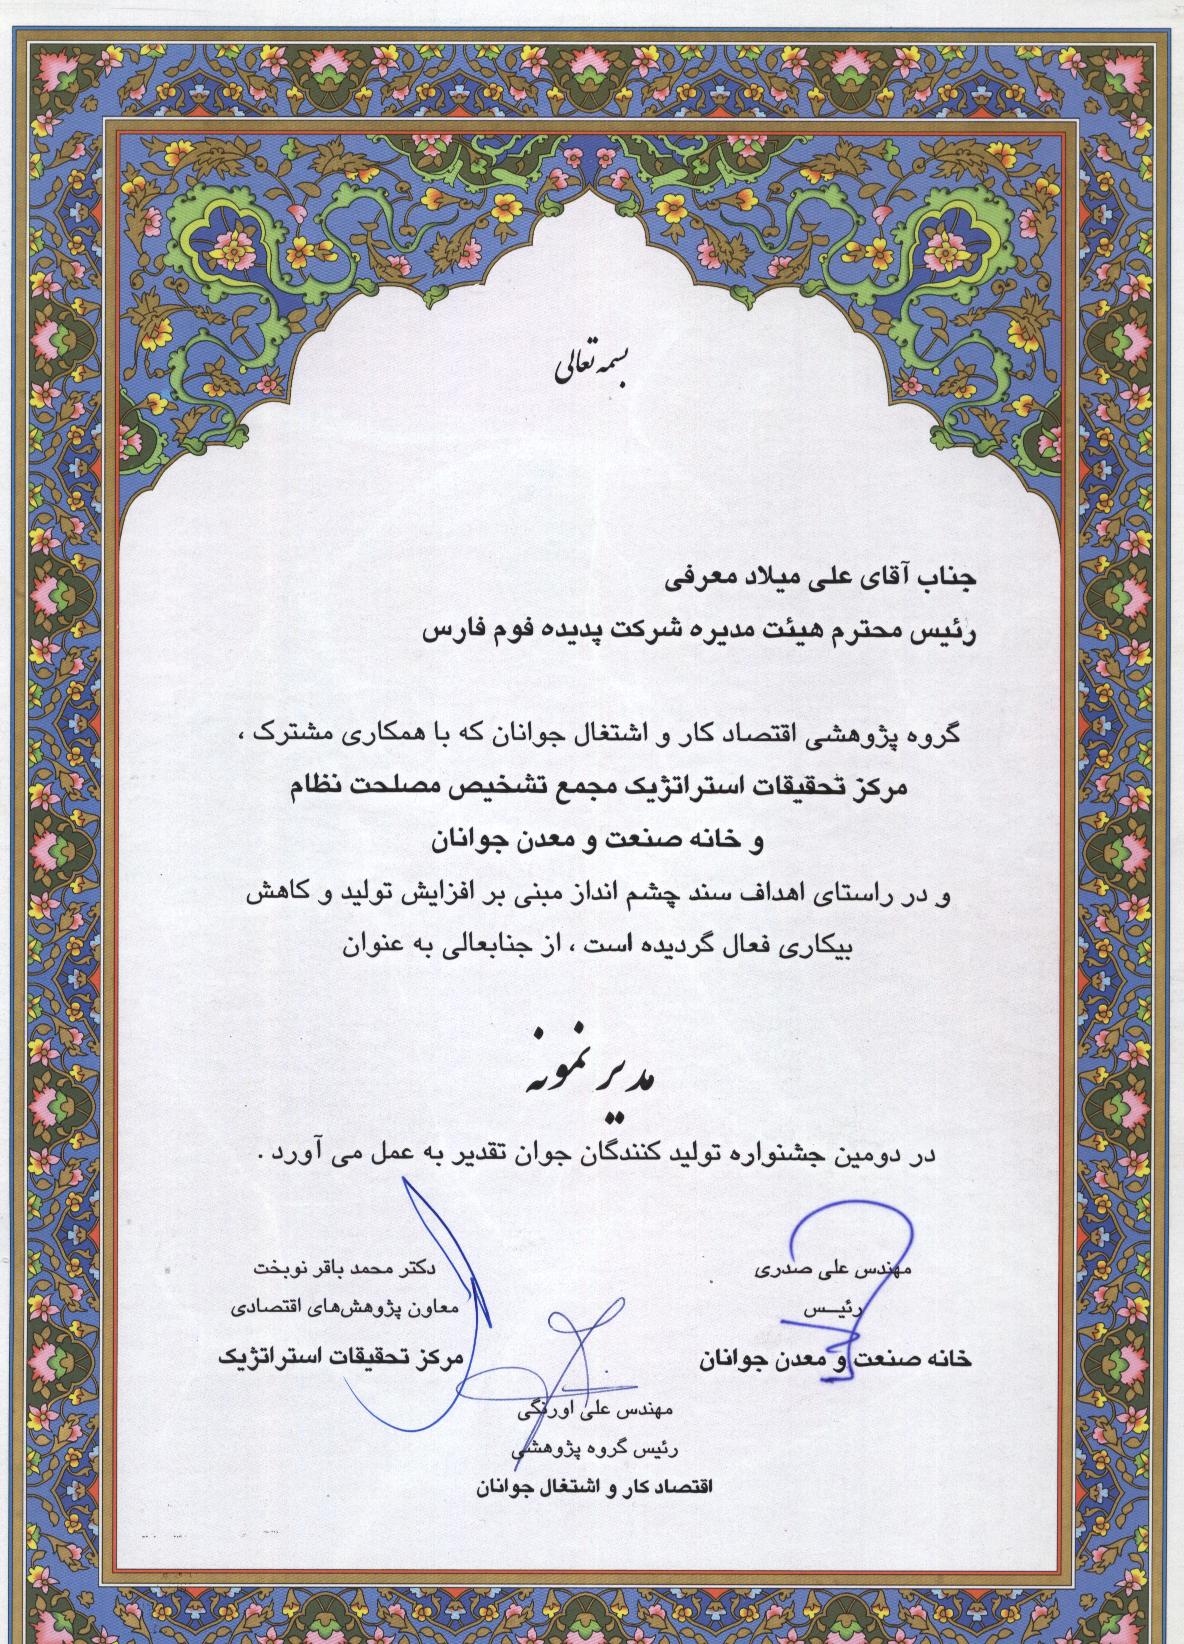 بسمه تعالی
جناب آقای علی میلاد معرفی
رئیس محترم هیئت مدیره شرکت پدیده فوم فارس
گروه پژوهشی اقتصاد کار و اشتغال جوانان که با همکاری مشترک ،
مرکز تحقیقات استراتژیک مجمع تشخیص مصلحت نظام
و خانه صنعت و معدن جوانان
و در راستای اهداف سند چشم انداز مبنی بر افزایش تولید و کاهش
بیکاری فعال گردیده است ، از جنابعالی به عنوان
مدیر نمونه
در دومین جشنواره تولید کنندگان جوان تقدیر به عمل می آورد .
مهندس علی صدری
رئیس
خانه صنعت و معدن جوانان
دکتر محمد باقر نوبخت
معاون پژوهش‌های اقتصادی
مرکز تحقیقات استراتژیک
مهندس علی اورنگی
رئیس گروه پژوهشی
اقتصاد کار و اشتغال جوانان